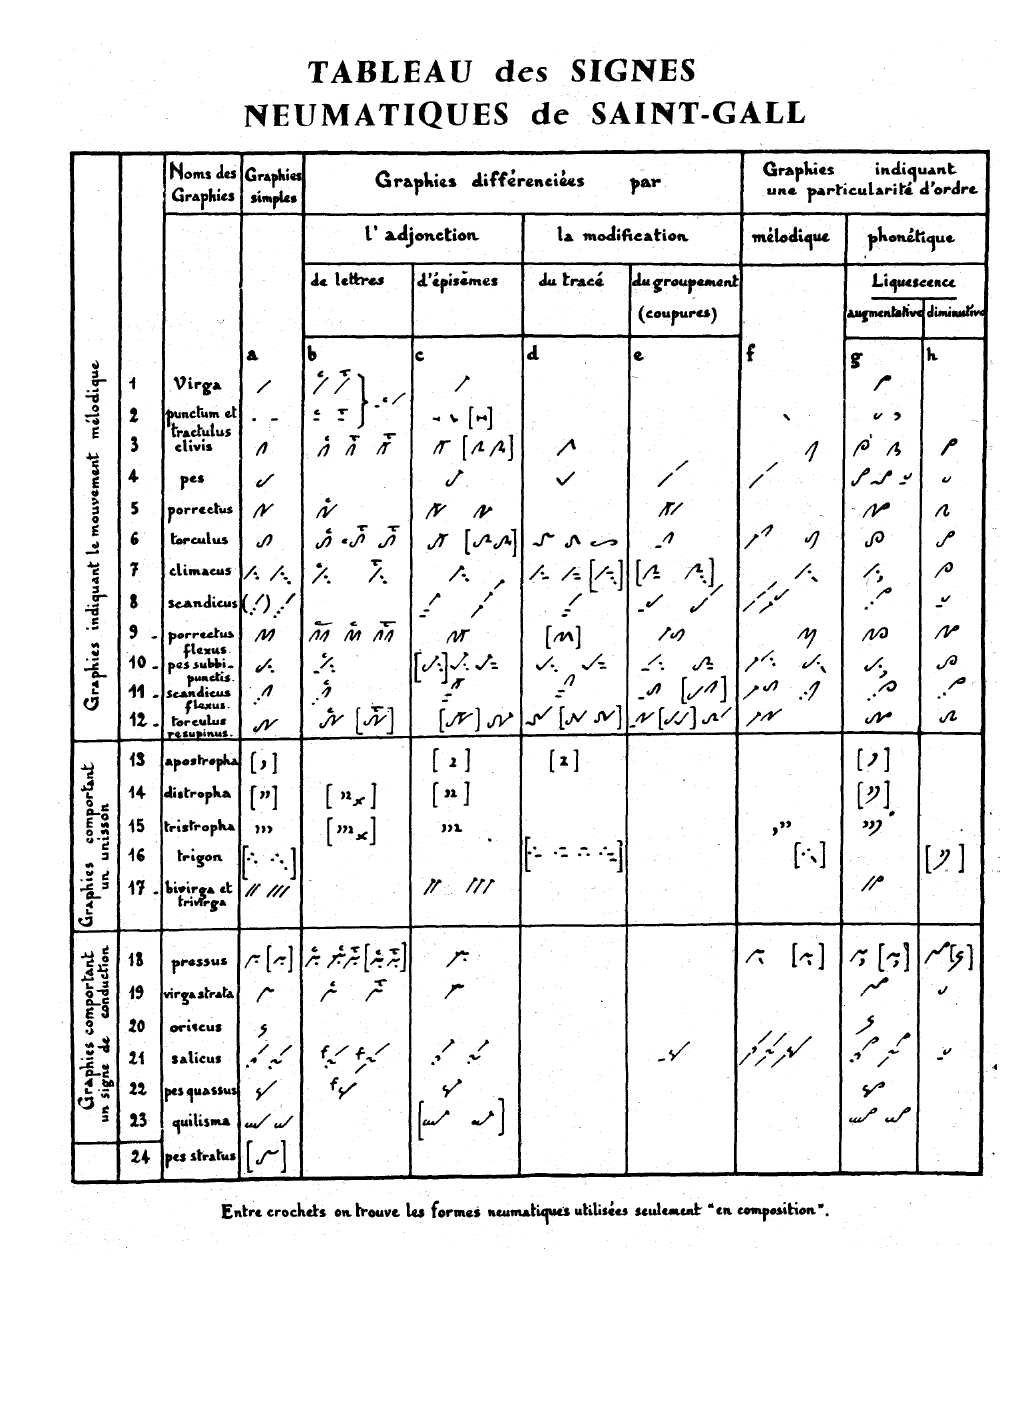 TABLEAU des SIGNES
NEUMATIQUES de SAINT-GALL
Noms des Graphies
Graphies simples
Graphies différenciées par
Graphies indiquant une particularité d'ordre
l'adjonction
la modification
mélodique
phonétique
de lettres
d'épisèmes
du tracé
du groupement (coupures)
Liquescence
augmentative
diminutive
a b c d e f g h
Graphies indiquant le mouvement mélodique
1 Virga
2 punctum et tractulus
3 clivis
4 pes
5 porrectus
6 torculus
7 climacus
8 scandicus
9 - porrectus flexus.
10 - pes subbi-punctis.
11 - scandicus flexus.
12 - torculus resupinus.
Graphies comportant un unisson
13 apostropha
14 distropha
15 tristropha
16 trigon
17 - bivirga et trivirga
Graphies comportant un signe de conduction
18 pressus
19 virga strata
20 oriscus
21 salicus
22 pes quassus
23 quilisma
24 pes stratus
Entre crochets on trouve les formes neumatiques utilisées seulement "en composition".